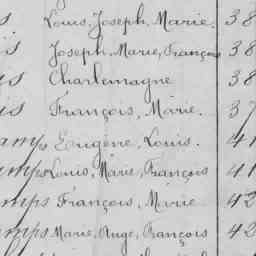 Louis, Joseph, Marie. 38
Joseph, Marie, François 38
Charlemagne 38
François, Marie. 37
amps Eugène, Louis. 41
amps Louis, Marie, François 41
mps François, Marie 42
mps Marie, Ange, François 42